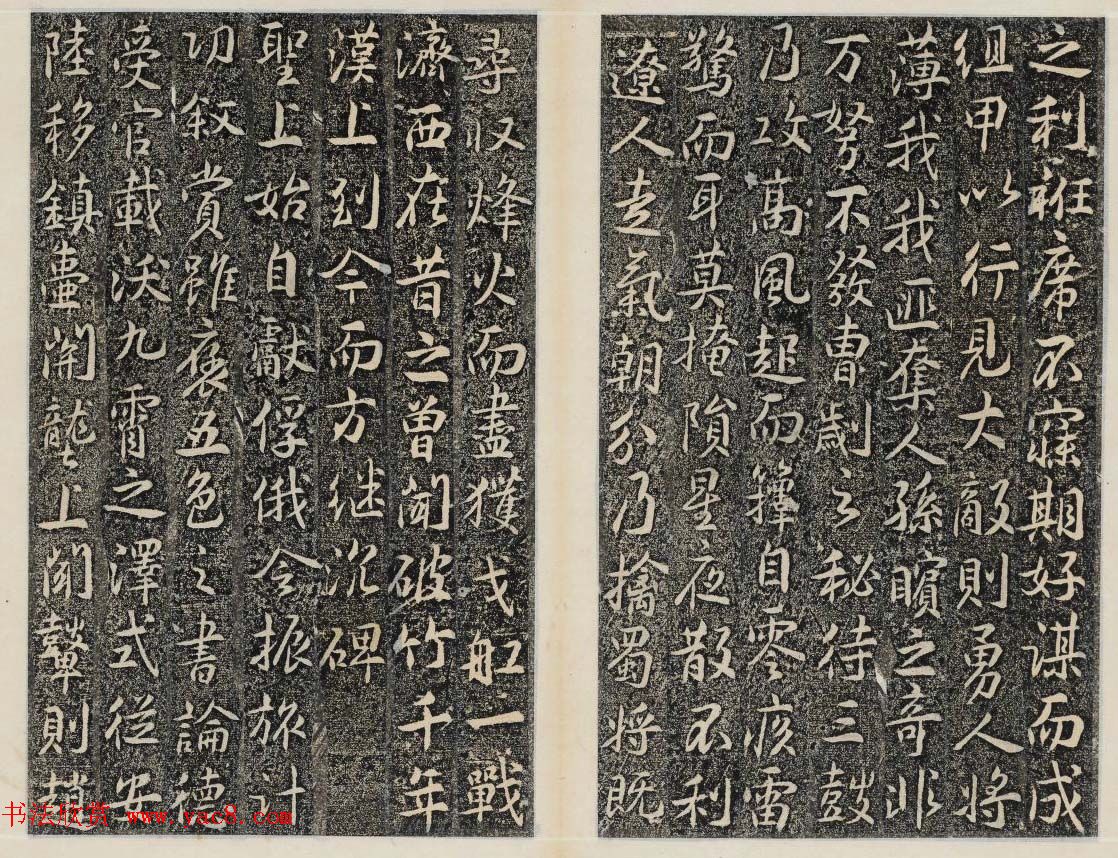 之利袵席不寐期好谋而成
组甲以行見大敵則勇人將
薄我我匪奪人孫臏之奇非
万弩不發曹劌之秘待三鼓
乃攻高風起而籜自零疾雷
驚而耳莫掩隕星夜散不利
遼人走氣朝分乃擒蜀將既
尋収烽火而盡獲戈舡一戰
濟西在昔之曽聞破竹千年
漢上到今而方继沉碑
聖上始自獻俘俄令振旅計
功叙賞雖褒五色之書論德
受官載沃九霄之澤式從安
陸移鎮臺開龍上聞鼙則
书法欣赏 www.yac8.com